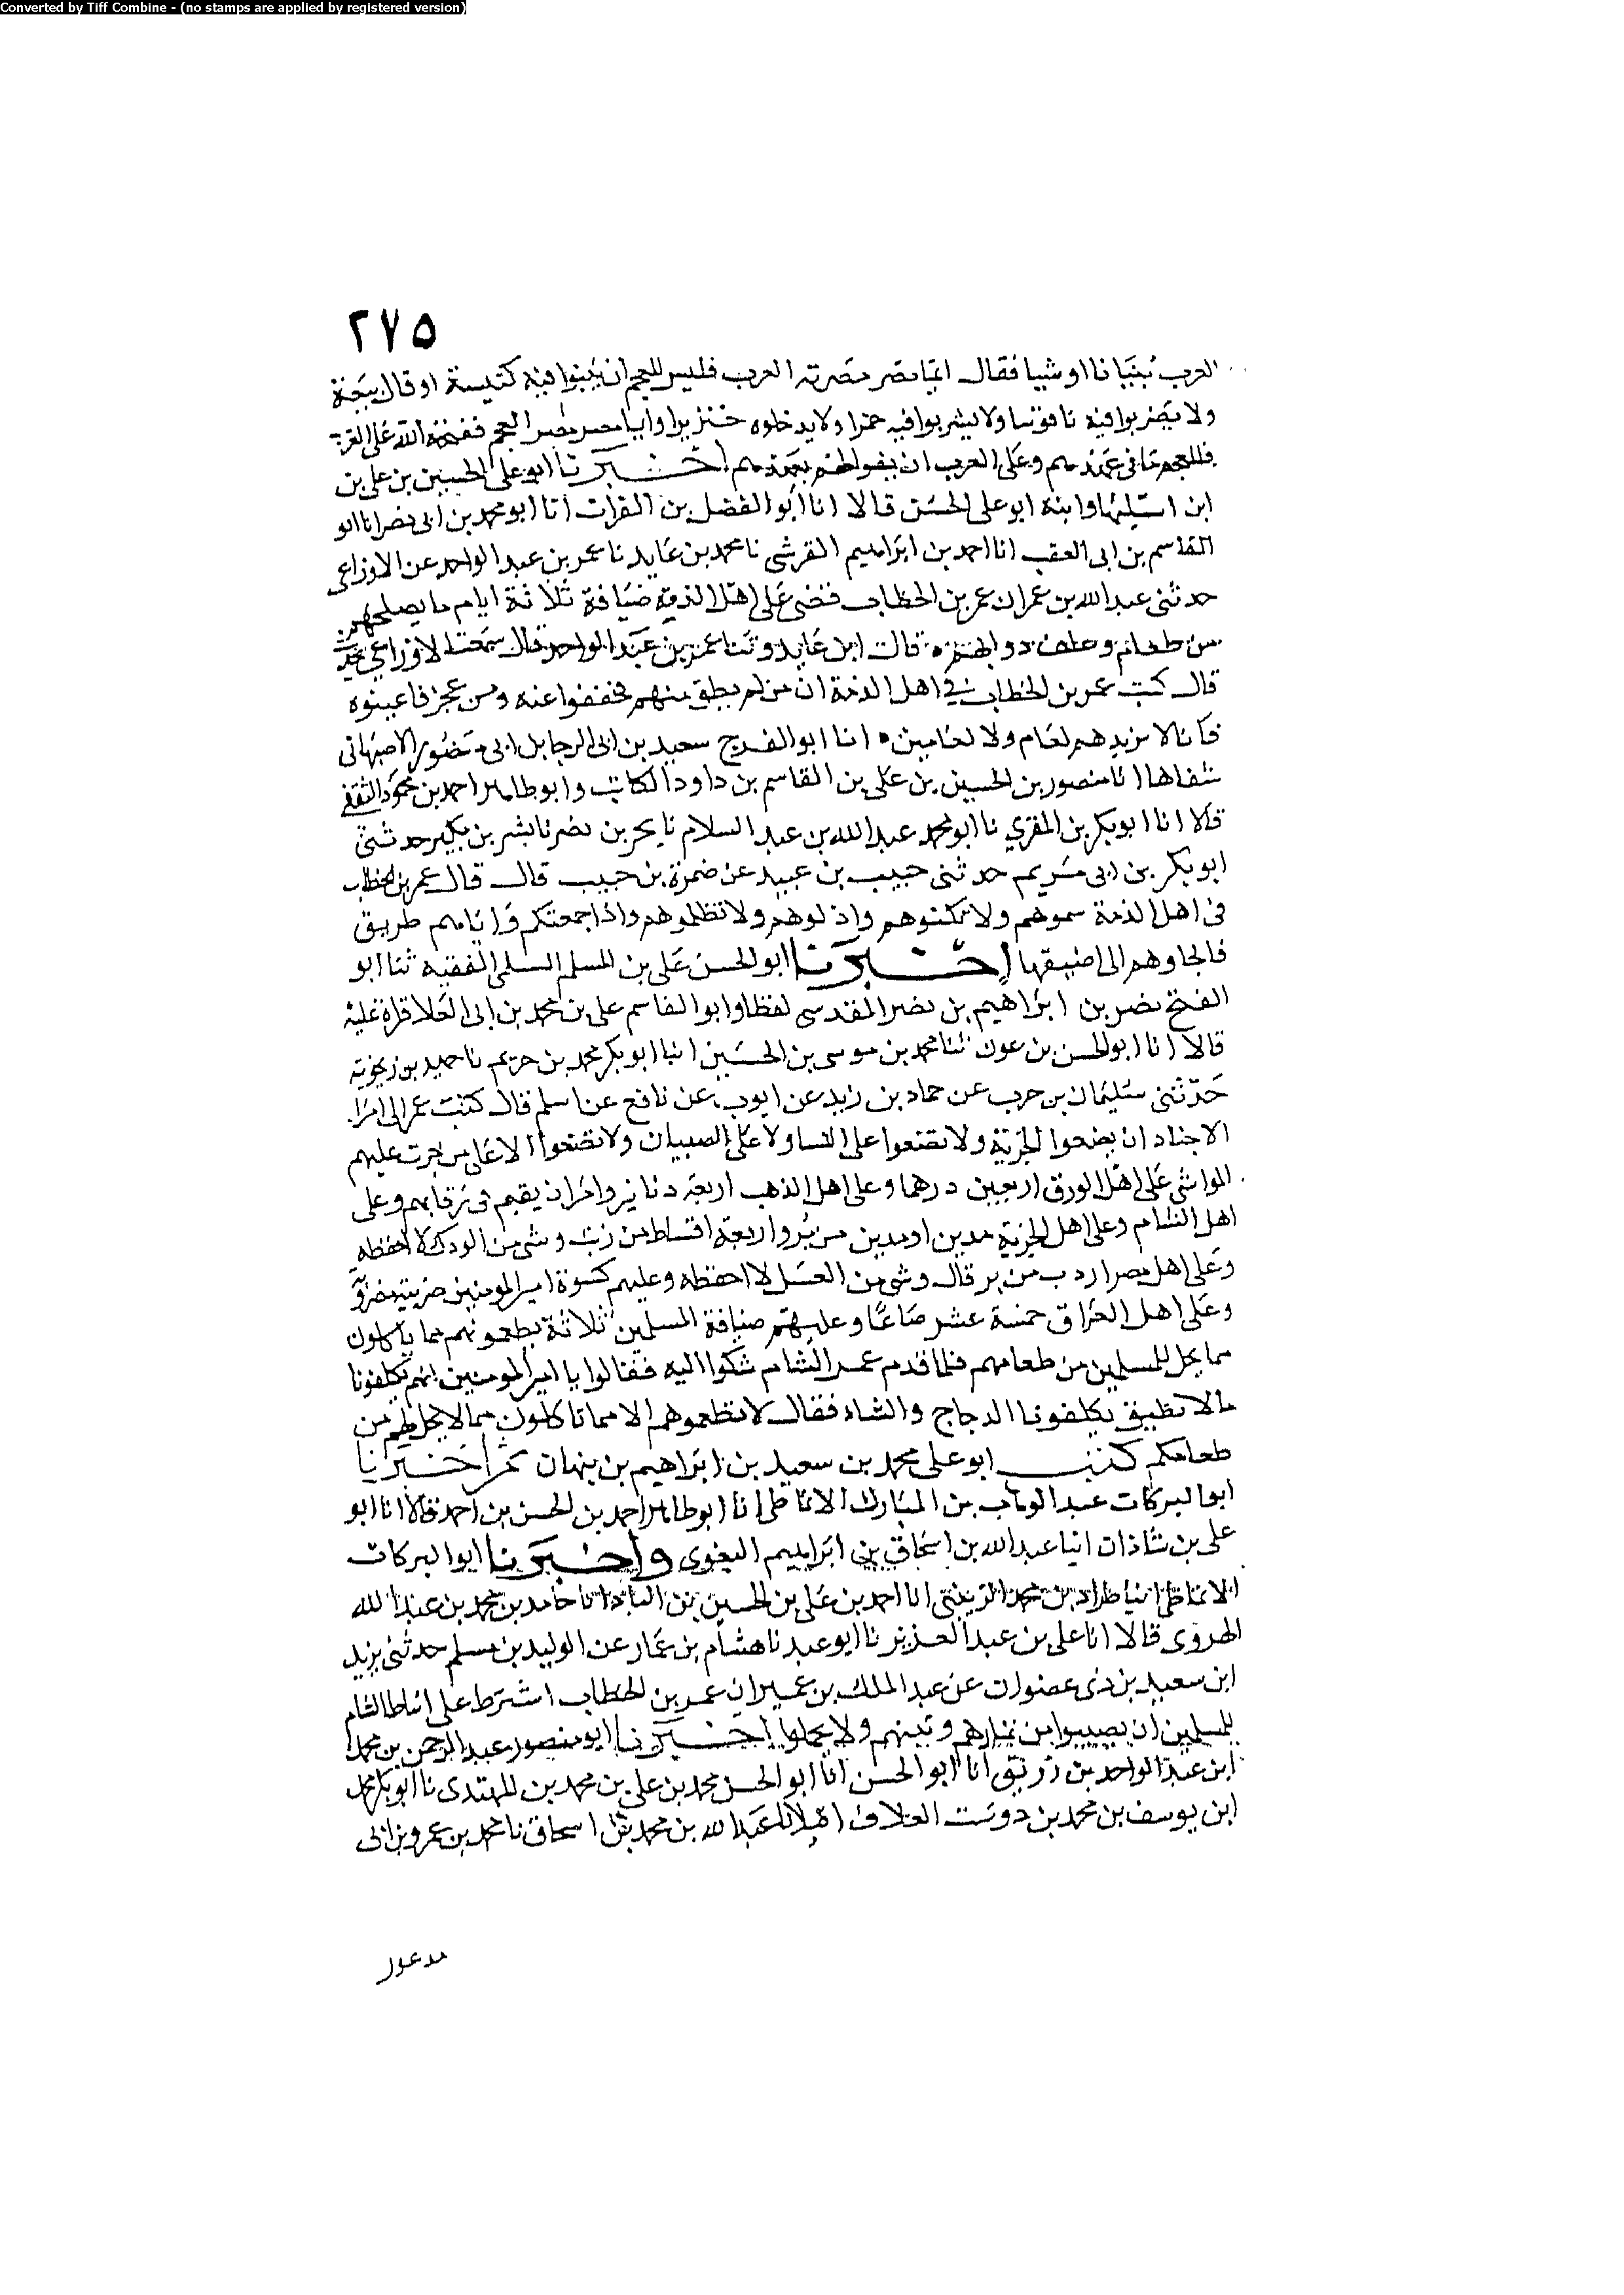 Converted by Tiff Combine - (no stamps are applied by registered version)
٢٧٥
العرب بنيانا او شيا فقال ايما مصر مصرته العرب فليس للعجم ان يبنوا فيه كنيسة او قال بيعة
ولا يضربوا فيه ناقوسا ولا يشربوا فيه خمرا ولا يدخلوه خنزيرا وايما مصر مصره العجم ففتحه الله على العرب
فللعجم ما في عهدهم وعلى العرب ان يفوا لهم بعهدهم اخبرنا ابو على الحسين بن على بن
ابن اشليها وابنه ابو على الحسن قالا انا ابو الفضل بن الفرات انا ابو محمد بن ابى نصر انا ابو
القاسم بن ابى العقب انا احمد بن ابراهيم القرشى نا محمد بن عايد نا عمر بن عبد الواحد عن الاوزاعى
حدثنى عبد الله بن عمران عمر بن الخطاب قضى على اهل الذمة ضيافة ثلاثة ايام ما يصلحهم
من طعام وعلف دوابهم قال ابن عايد وثنا عمر بن عبد الواحد قال سمعت الاوزاعي يحدث
قال كتب عمر بن الخطاب في اهل الذمة ان من لم يطق منهم فخففوا عنه ومن عجز فاعينوه
فانا لا نريدهم لعام ولا لعامين انا ابو الفرج سعيد بن ابى الرجا بن ابى منصور الاصبهانى
شفاها انا منصور بن الحسين بن على بن القاسم بن داود الكاتب وابو طاهر احمد بن محمود الثقفى
قالا انا ابو بكر بن المقري نا ابو محمد عبد الله بن عبد السلام نا بحر بن نصر نا بشر بن بكير حدثنى
ابو بكر بن ابى مريم حدثنى حبيب بن عبيد عن ضمرة بن حبيب قال قال عمر بن الخطاب
فى اهل الذمة سموهم ولا تكنوهم واذلوهم ولا تظلموهم واذا جمعتكم واياهم طريق
فالجاوهم الى اضيقها اخبرنا ابو الحسن على بن المسلم السلمى الفقيه ثنا ابو
الفتح نصر بن ابراهيم بن نصر المقدسى لفظا وابو القاسم على بن محمد بن ابى العلا قراة عليه
قالا انا ابو الحسن بن عوف ثنا محمد بن موسى بن الحسين انبا ابو بكر محمد بن خريم نا حميد بن زنجويه
حدثنى سليمان بن حرب عن حماد بن زيد عن ايوب عن نافع عن اسلم قال كتب عمر الى امرا
الاجناد ان يضعوا الجزية ولا يضعوا على النسا ولا على الصبيان ولا تضعوا الا على من جرت عليهم
المواشى على اهل الورق اربعين درهما وعلى اهل الذهب اربعة دنانير وامر ان يقيم فى رقابهم وعلى
اهل الشام وعلى اهل الجزية مدين او مدين من بر واربعة اقساط من زيت وشى من الودك لا احفظه
وعلى اهل مصر اردب من بر قال وشى من العسل لا احفظه وعليهم كسوة امير المومنين ضريبة مضروبة
وعلى اهل العراق خمسة عشر صاعا وعليهم ضيافة المسلمين ثلاثة يطعمونهم مما ياكلون
مما يحل للمسلمين من طعامهم فلما قدم عمر الشام شكوا اليه فقالوا يا امير المومنين انهم يكلفونا
مالا نطيق يكلفونا الدجاج والشاء فقال لا تطعموهم الا مما تاكلون مما لا يحل لهم من
طعامكم كتب ابو على محمد بن سعيد بن ابراهيم بن نبهان ثم اخبرنا
ابو البركات عبد الوهاب بن المبارك الانماطى انا ابو طاهر احمد بن الحسن بن احمد قالا انا ابو
على بن شاذان انبا عبد الله بن اسحاق بن ابراهيم البغوى واخبرنا ابو البركات
الانماطى انبا طراد بن محمد الزينبى انا احمد بن على بن الحسين بن البادا انا حامد بن محمد بن عبد الله
الهروى قالا انا على بن عبد العزيز نا ابو عبيد نا هشام بن عمار عن الوليد بن مسلم حدثنى يزيد
ابن سعيد بن ذى عصوان عن عبد الملك بن عمير ان عمر بن الخطاب اشترط على انباط الشام
للمسلمين ان يصيبوا من ثمارهم وتبنهم ولا يحملوا اخبرنا ابو منصور عبد الرحمن بن محمد
ابن عبد الواحد بن زريق انا ابو الحسن انا ابو الحسن محمد بن على بن محمد بن المهتدى نا ابو بكر محمد
ابن يوسف بن محمد بن دوست العلاف املا عبد الله بن محمد بن اسحاق نا محمد بن عمرو بن ابى
مدعور